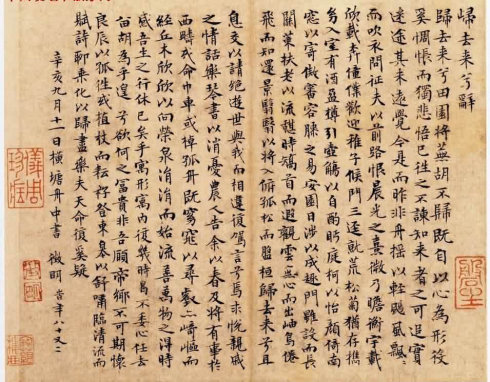 歸去來兮辭
歸去來兮田園將蕪胡不歸既自以心為形役
奚惆悵而獨悲悟已往之不諫知來者之可追實
迷途其未遠覺今是而昨非舟搖〻以輕颺風飄〻
而吹衣問征夫以前路恨晨光之熹微乃瞻衡宇載
欣載奔僮僕歡迎稚子候門三逕就荒松菊猶存攜
幼入室有酒盈樽引壺觴以自酌眄庭柯以怡顏倚南
窓以寄傲審容膝之易安園日涉以成趣門雖設而長
關策扶老以流憩時矯首而遐觀雲無心而出岫鳥倦
飛而知還景翳〻以將入撫孤松而盤桓歸去來兮且
息交以請絕遊世與我而相遺復駕言兮焉求悅親戚
之情話樂琴書以消憂農人告余以春及將有事於
西疇或命巾車或棹孤舟既窈窕以尋壑亦崎嶇而
經丘木欣欣以向榮泉涓涓而始流善萬物之得時
感吾生之行休已矣乎寓形宇內復幾時曷不委心任去
留胡為乎遑〻兮欲何之富貴非吾願帝鄉不可期懷
良辰以孤往或植杖而耘耔登東皋以舒嘯臨清流而
賦詩聊乘化以歸盡樂夫天命復奚疑
辛亥九月十一日橫塘舟中書 徵明 時年八十又二